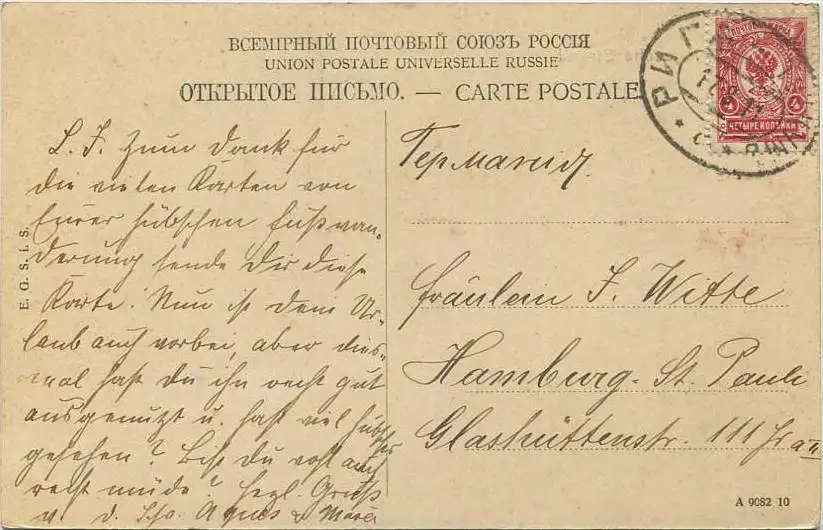 ВСЕМІРНЫЙ ПОЧТОВЫЙ СОЮЗЪ РОССІЯ
UNION POSTALE UNIVERSELLE RUSSIE
ОТКРЫТОЕ ПИСЬМО. — CARTE POSTALE
РИГА
4 4
ЧЕТЫРЕ КОПѢЙКИ
L. F. Zum Dank für
die vielen Karten von
Eurer hübschen Fußwan-
derung sende Dir diese
Karte. Nun ist Dein Ur-
laub auch vorbei, aber dies-
mal hast Du ihn recht gut
ausgenutzt u. hast viel hübsches
gesehen? Bist Du wohl auch
recht müde? Herzl. Gruß
v. d. Agnes
E. G. S. I. S.
Германія.
Fräulein F. Witte
Hamburg-St. Pauli
Glashüttenstr. 111
A 9082 10